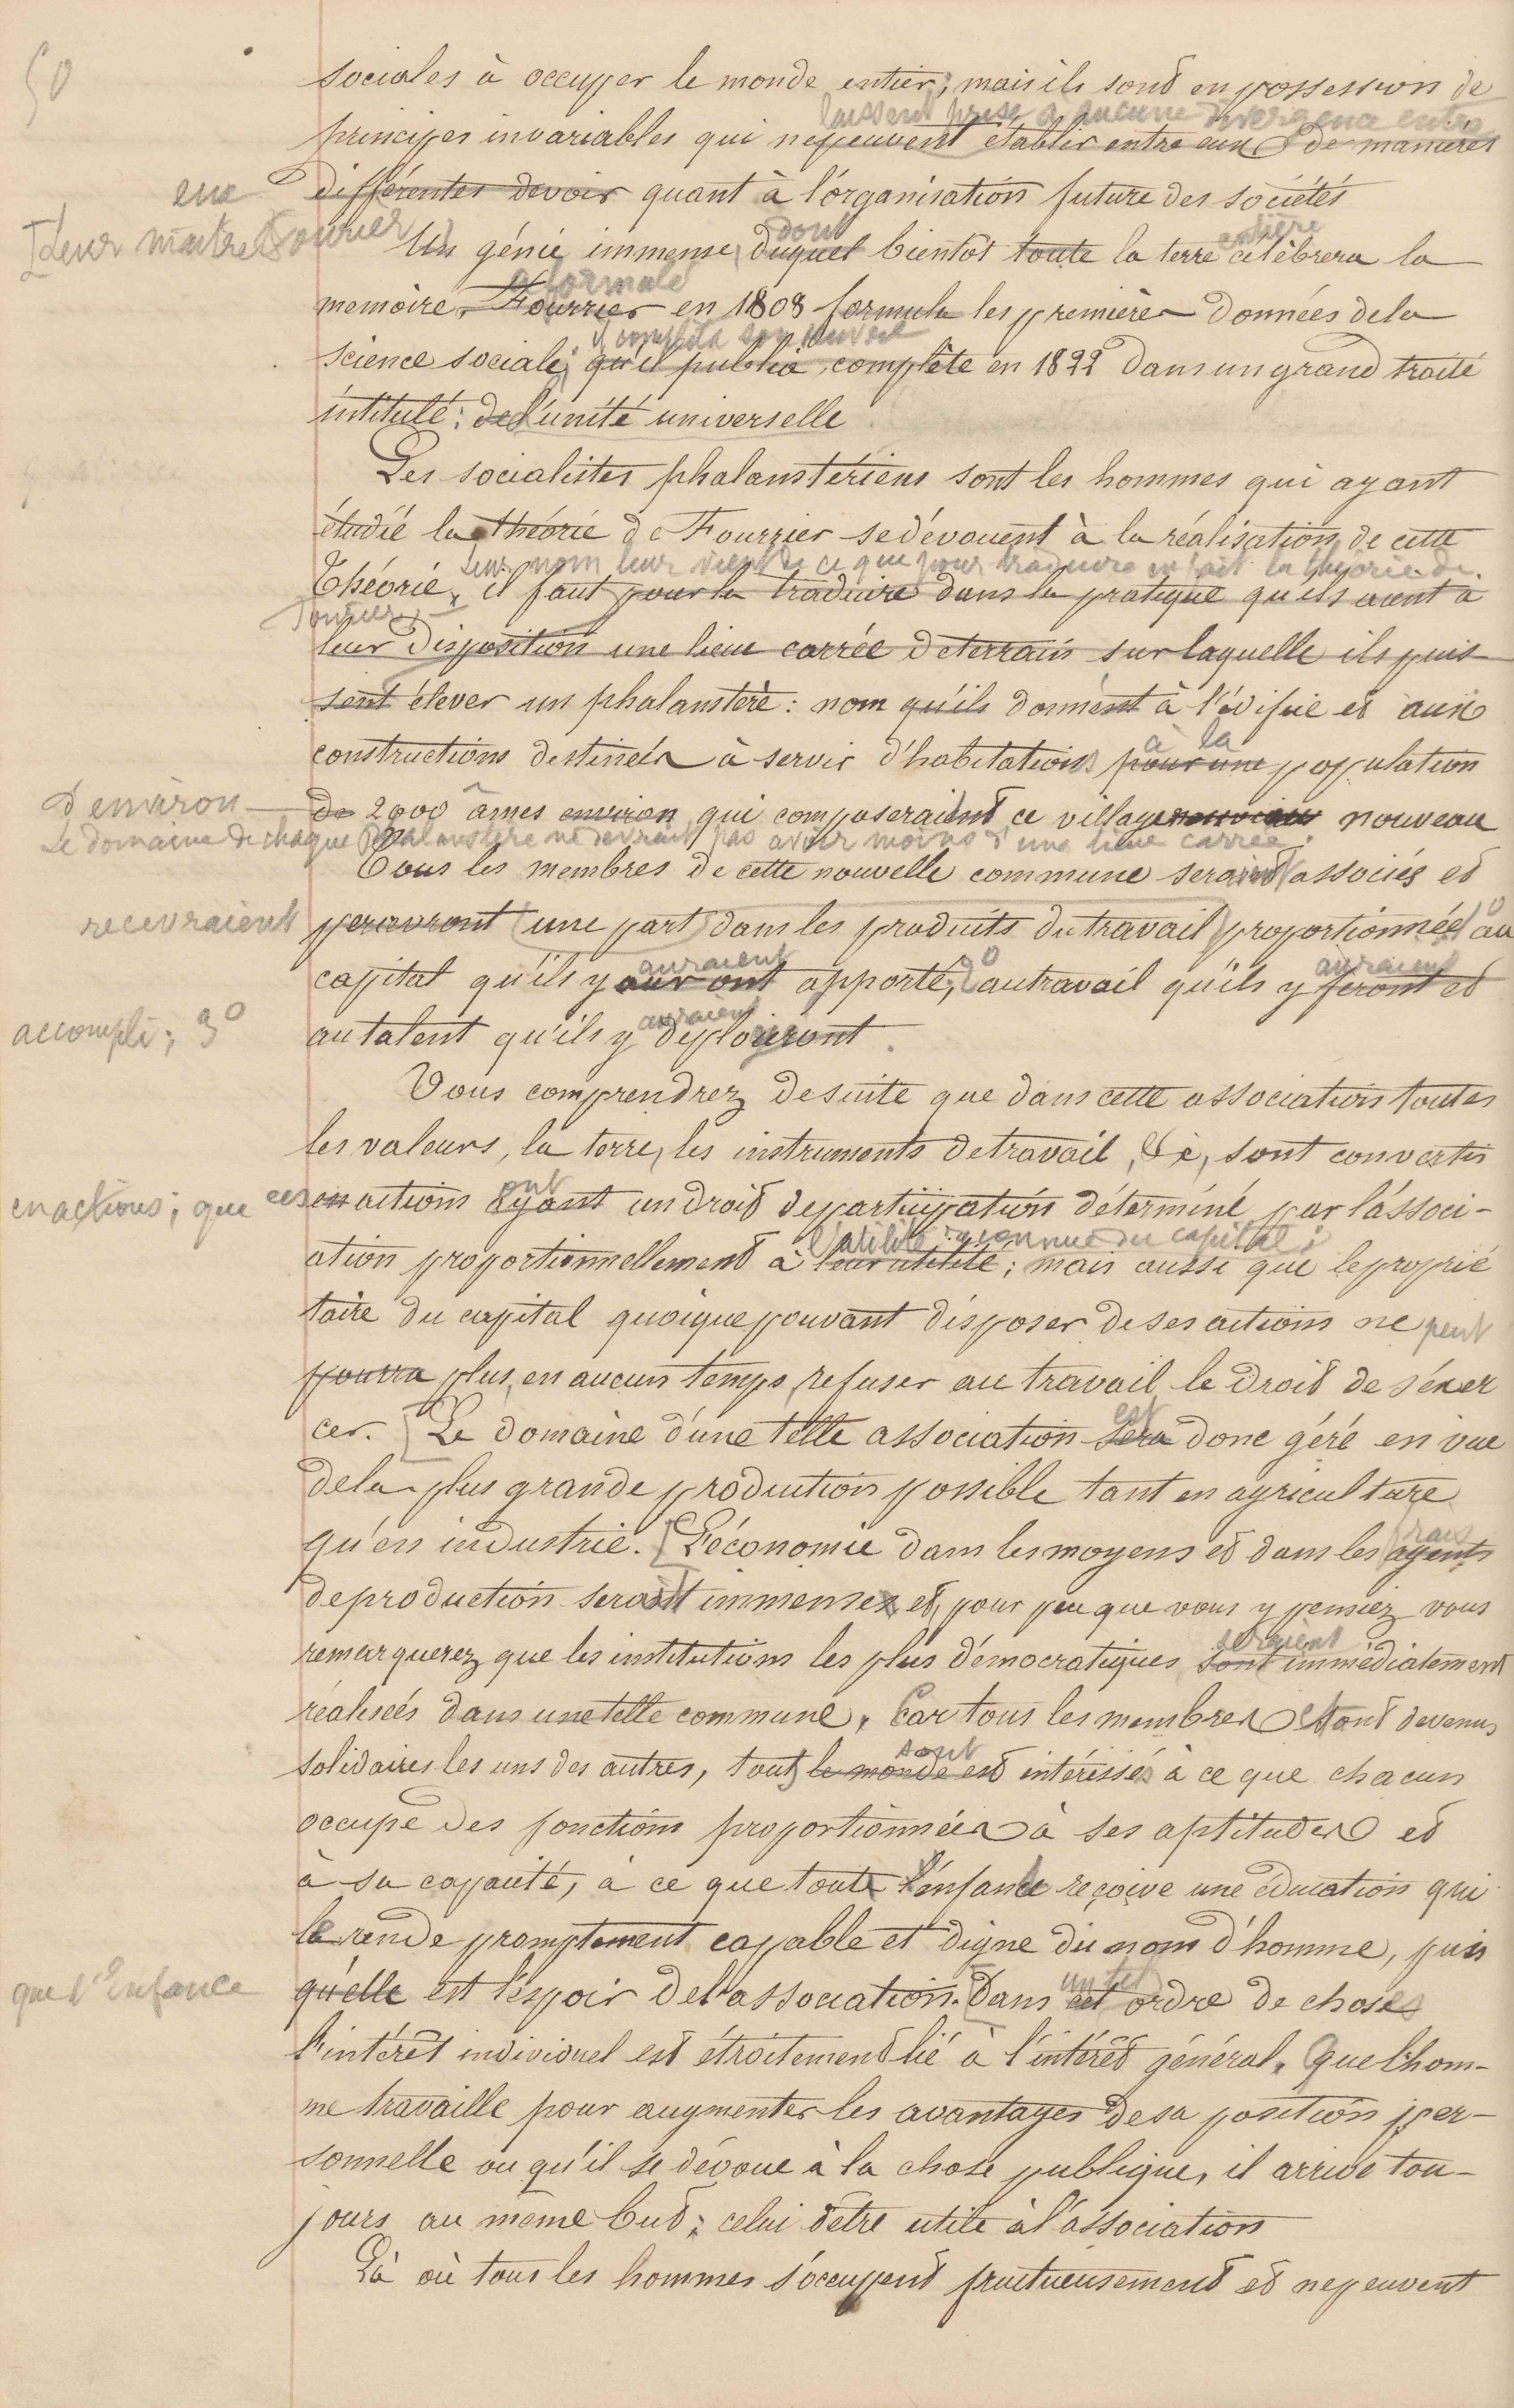 50
sociales à occuper le monde entier; mais ils sont en possession de
laissent prise à aucune divergence entre
principes invariables qui ne peuvent établir entre eux de manières
eux
différentes de voir quant à l'organisation future des sociétés
leur maitre Fourier
dont
entière
Un génie immense, duquel bientôt toute la terre célèbrera la
a formulé
memoire, Fourrier en 1808 formula les premières données de la
il complèta son œuvre
science sociale; qu'il publia complète en 1822 dans un grand traité
intitulé: de l'unité universelle
Les socialistes phalanstériens sont les hommes qui ayant
étudié la théorie de Fourrier se dévouent à la réalisation de cette
Leur nom leur vient de ce que pour traduire en fait la théorie de
Théorie, il faut pour la traduire dans la pratique qu'ils aient à
Fourier,
leur disposition une lieue carrée de terrain sur laquelle ils puis-
sent élever un phalanstère: nom qu'ils donnent à l'édifice et aux
à la
constructions destinées à servir d'habitations pour une population
d'environ
de 2000 âmes environ qui composeraient ce village nouveau
Le domaine de chaque Phalanstère ne devrait pas avoir moins d'une lieue carrée.
Tous les membres de cette nouvelle commune seraient associés et
recevraient
percevront une part dans les produits du travail proportionnée 1º au
auraient
2º
auraient
capital qu'ils y auront apporté, au travail qu'ils y feront et
accompli; 3º
auraient
au talent qu'ils y déploiront.
Vous comprendrez de suite que dans cette association toutes
les valeurs, la terre, les instruments de travail, &c, sont convertis
en actions; que ces
ont
en actions ayant un droit de participation déterminé par l'associ-
l'utilité reconnue du capital;
ation proportionnellement à leur utilité; mais aussi que le proprié
taire du capital quoique pouvant disposer de ses actions ne peut
pourra plus, en aucun temps, refuser au travail le droit de s'éxer
est
cer. Le domaine d'une telle association sera donc géré en vue
de la plus grande production possible tant en agriculture
frais
qu'en industrie. L'économie dans les moyens et dans les agents
de production serait immense et, pour peu que vous y pensiez vous
seraient
remarquerez que les institutions les plus démocratiques sont immédiatement
réalisées dans une telle commune. Car tous les membres étant devenus
sont
solidaires les uns des autres, tous le monde est intéressés à ce que chacun
occupe des fonctions proportionnées à ses aptitudes et
à sa capacité, à ce que toute l'enfance reçoive une éducation qui
la rende promptement capable et digne du nom d'homme, puis
que l'Enfance
un tel
qu'elle est l'espoir de l'association. Dans cet ordre de choses
l'intérêt individuel est étroitement lié à l'intérêt général. Que l'hom-
me travaille pour augmenter les avantages de sa position per-
sonnelle ou qu'il se dévoue à la chose publique, il arrive tou-
jours au même but; celui d'être utile à l'association
Là où tous les hommes s'occupent fructueusement et ne peuvent